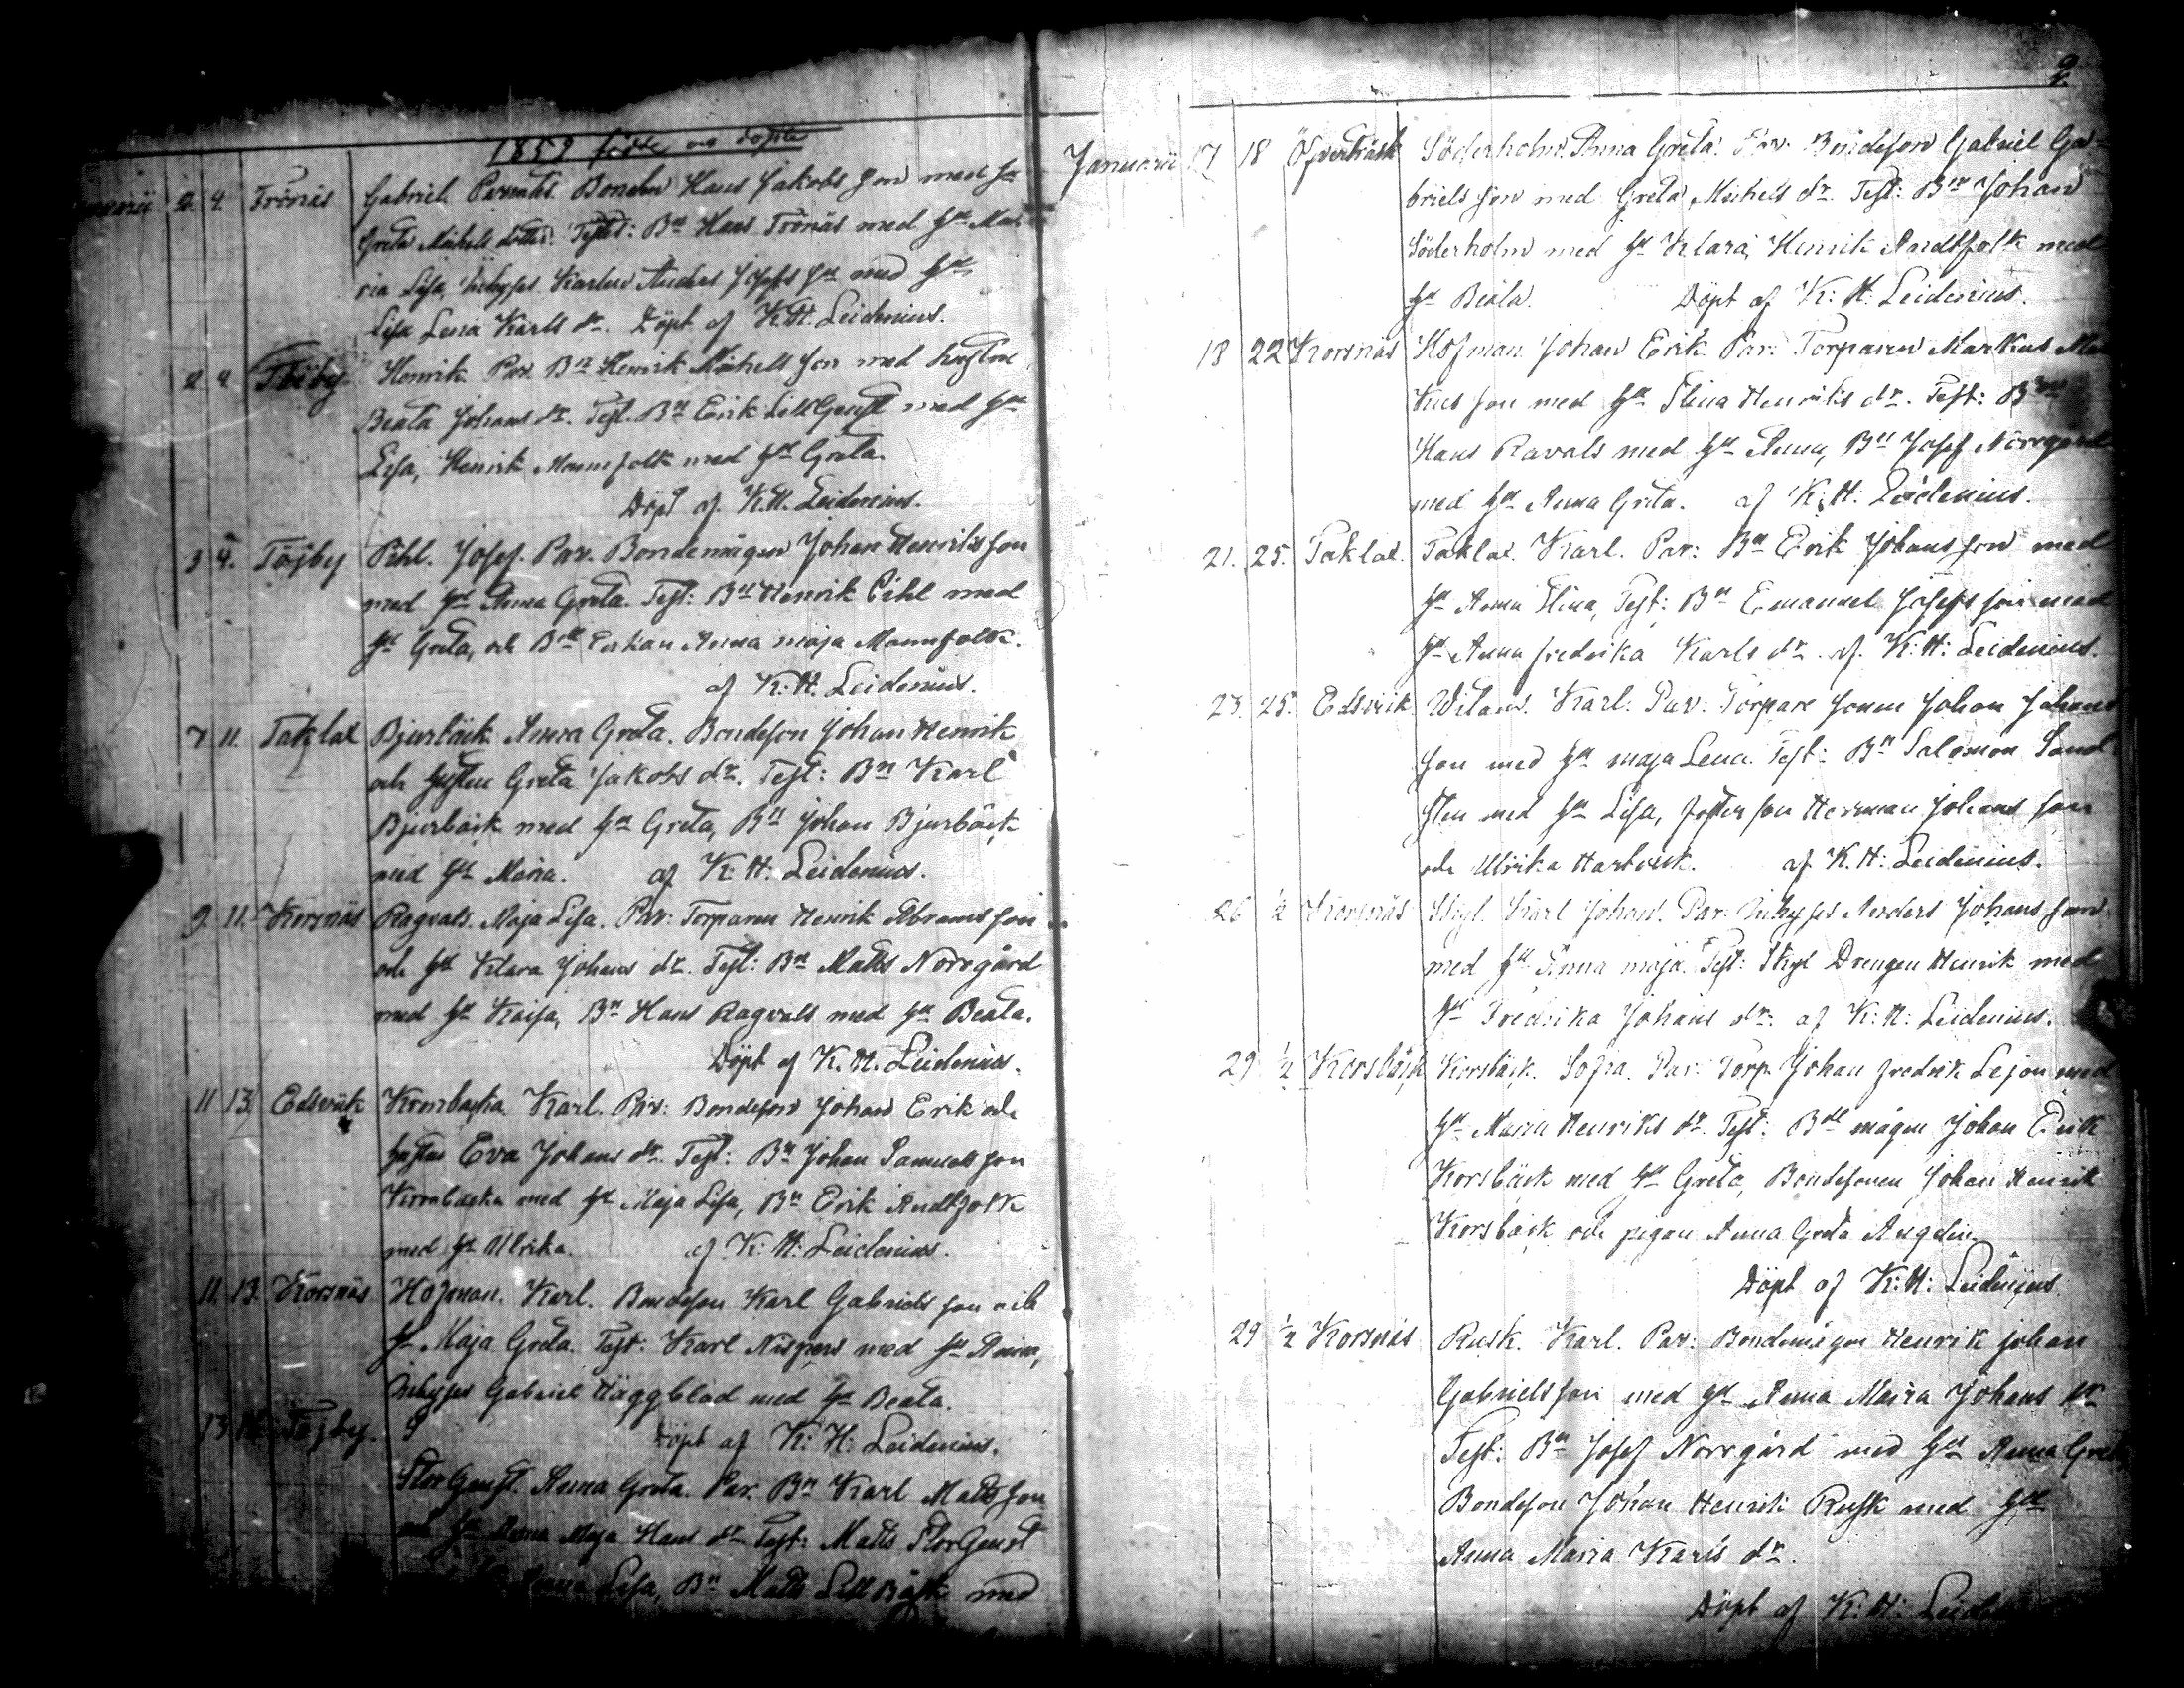 1859 födde och döpte
Januarii 2. 4. Trönäs Gabriel. Parentes. Bonden Hans Jakobs son med hu
Greta Michels dotter. Testes: Bn Hans Trönäs med hu Ma-
ria Lisa, Inhyses Karlen Anders Josefs son med hu
Lisa Lena Karls dr. Döpt af K.H. Leidenius.
2. 4. Töjby Henrik. Par. Bn Henrik Michels son med hustru
Beata Johans dr. Test. Bn Erik LillGeust med hu
Lisa, Henrik Mannfolk med hu Greta.
Döpt af K.H. Leidenius.
3 4. Töjby Pihl. Josef. Par. Bondemågen Johan Henriks son
med hu Anna Greta. Test: Bn Henrik Pihl med
hu Greta, och Bde Enkan Anna Maja Mannfolk.
af K:H. Leidenius.
7 11. Taklax Bjurbäck Anna Greta. Bondeson Johan Henrik
och hustru Greta Jakobs dr. Test: Bn Karl
Bjurbäck med hu Greta, Bn Johan Bjurbäck
med hu Maria. af K:H. Leidenius.
9. 11. Korsnäs Ragvals. Maja Lisa. Par: Torparen Henrik Abrams son
och hu Klara Johans dr. Test: Bn Matts Norrgård
med hu Kaisa, Bn Hans Ragvals med hu Beata.
Döpt af K.H. Leidenius.
11 13. Edsvik Krombacka Karl. Par: Bondeson Johan Erik och
hustru Eva Johans dr. Test: Bn Johan Samuels son
Krombacka med hu Maja Lisa, Bn Erik Andtfolk
med hu Ulrika. af K:H: Leidenius.
11. 13. Korsnäs Hofman. Karl. Bondeson Karl Gabriels son och
hu Maja Greta. Test: Karl Nispers med hu Anna,
Inhyses Gabriel Häggblad med hu Beata.
13 Töjby. Döpt af K: H: Leidenius.
StorGeust. Anna Greta. Par. Bn Karl Matts son
och hu Anna Maja Hans dr Test: Matts StorGeust
Anna Lisa, Bn Matts Lillbåsk med
2
Januarii 17 18 Öfverträsk Söderholm. Anna Greta. Par: Bondeson Gabriel Ga-
briels son med Greta Michels dr. Test: Bn Johan
Söderholm med hu Klara, Henrik Andtfolk med
hu Beata. Döpt af K: H: Leidenius.
18 22 Korsnäs Hofman Johan Erik. Par: Torparen Markus Mar
kus son med hu Stina Henriks dr. Test: Bn
Hans Ravals med hu Anna, Bn Josef Norrgård
med hu Anna Greta. af K: H: Leidenius.
21. 25. Taklax. Taklax. Karl. Par: Bn Erik Johans son med
hu Anna Stina, Test: Bn Emanuel Josefs son med
hu Anna Fredrika Karls dr. af K: H: Leidenius.
23. 25. Edsvik Karl. Par: Torpare sonen Johan Johans
son med hu Maja Lena. Test: Bn Salomon Sand
sten med hu Lisa, foster son Herman Johans son
och Ulrika Hartvik. af K.H: Leidenius.
26 1/2 Korsnäs Skyl. Karl Johan. Par: Inhyses Anders Johans son
med hu Anna Maja. Test: Skyl Drengen Henrik med
hu Fredrika Johans dr. af K: H: Leidenius.
29 1/2 Korsbäck Korsbäck. Sofia. Par: Torp. Johan Fredrik Lejon med
hu Maria Henriks dr. Test: Bde mågen Johan Erik
Korsbäck med hu Greta, Bondesonen Johan Henrik
Korsbäck och pigan Anna Greta
Döpt af K: H: Leidenius
29 1/2 Korsnäs Rusk. Karl. Par: Bondemågen Henrik Johan
Gabriels son med hu Anna Maria Johans dr
Test: Bn Josef Norrgård med hu Anna Greta
Bondeson Johan Henrik Rusk med hu
Anna Maria Karls dr.
Döpt af K: H: